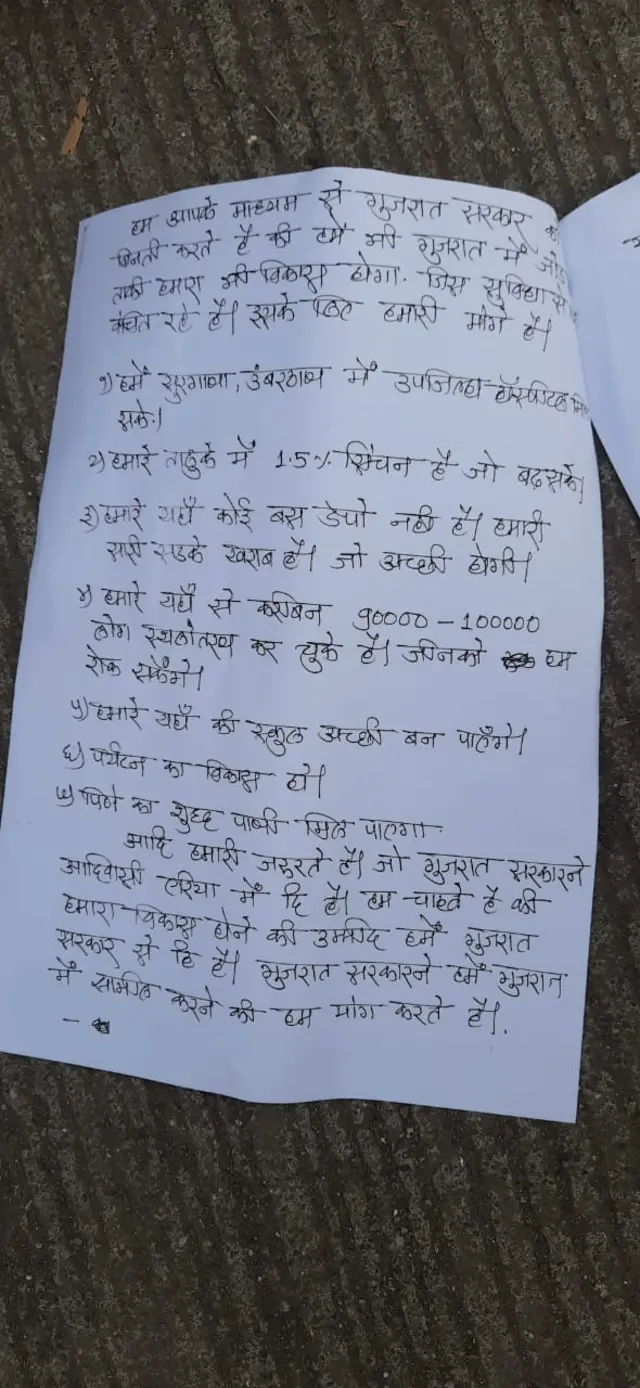 हम आपके माध्यम से गुजरात सरकार को
बिनती करते है की हमें भी गुजरात में जोड़
ताकी हमारा भी विकास होगा. जिस सुविधा से
वंचित रहे है| इसके लिए हमारी मांगे है|
१) हमें सुरगाणा, उंबरठाण में उपजिल्हा हॉस्पिटल मिल
सके.|
२) हमारे तालुके में 1.5% सिंचन है जो बढ़ सके|
३) हमारे यहाँ कोई बस डेपो नही है| हमारी
सारी सडके खराब है| जो अच्छी होगी|
४) हमारे यहाँ से करीबन 90000 - 100000
लोग स्थलांतरण कर चुके है| जिनको हम
रोक सकेंगे|
५) हमारे यहाँ की स्कुल अच्छी बन पाएँगे|
६) पर्यटन का विकास हो|
७) पिने का शुध्द पाणी मिल पाएगा.
आदि हमारी जरुरते है| जो गुजरात सरकारने
आदिवासी एरिया में दि है| हम चाहते है की
हमारा विकास होने की उम्मीद हमें गुजरात
सरकार से हि है| गुजरात सरकारने हमें गुजरात
में सामील करने की हम मांग करते है|.